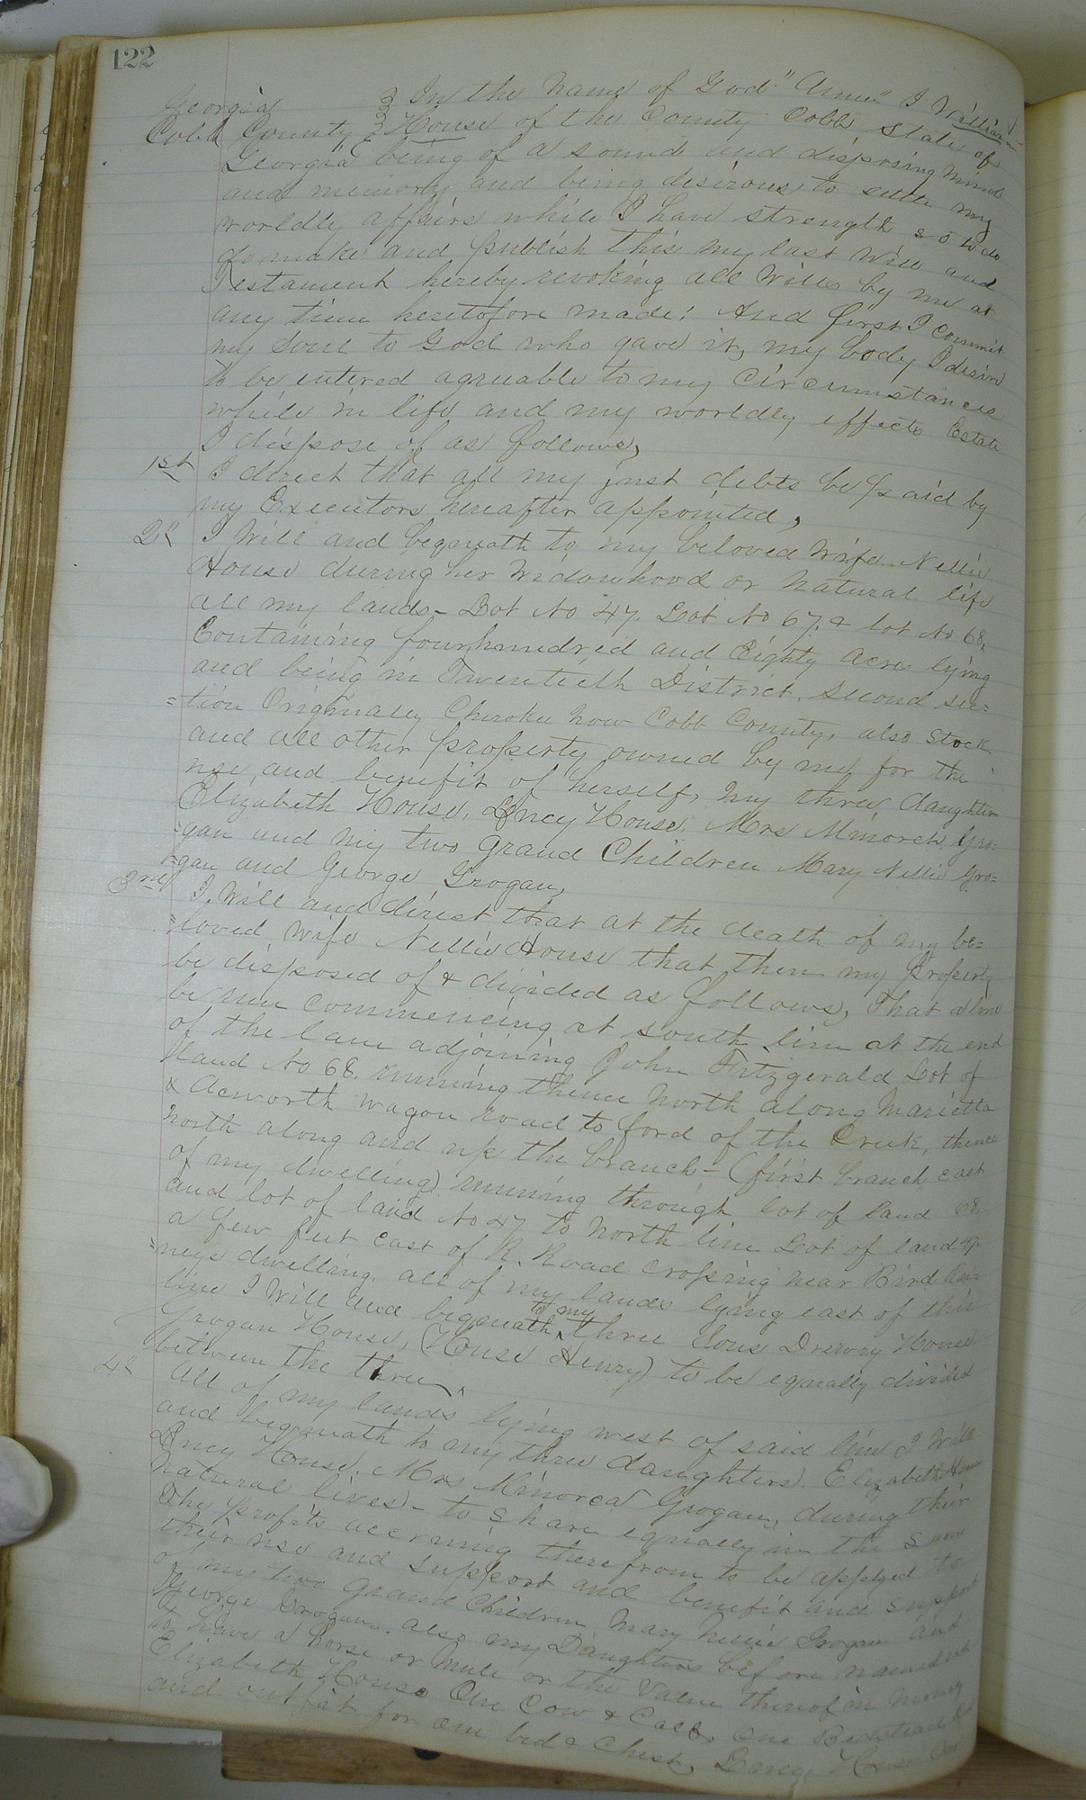 122
Georgia In the name of God "Amen" I William
Cobb County House of the County Cobb State of
Georgia being of a sound and disposing mind
and memory and being desirous to settle my
worldly affairs while I have strength so to do
do make and publish this my last Will and
Testament hereby revoking all Wills by me at
any time heretofore made: And first I commit
my Soul to God who gave it, my body I desire
to be intered agreeable to my circumstances
while in life and my worldly effects Estate
I dispose of as follows,
1st I direct that all my just debts be paid by
my Executors hereafter appointed,
2" I Will and bequeath to my beloved Wife Nellie
House during her Widowhood or natural life
all my lands - Lot No 47. Lot No 67. & lot No 68,
Containing four hundred and Eighty acres lying
and being in Twentieth District. Second sec=
=tion Originaly Cherokee now Cobb County, also Stock
and all other property owned by me for the
use and benefit of herself, my three daughters
Elizabeth House, Dncy House, Mrs Minorca Gro=
=gan and my two grand Children Mary Nellie Gro=
=gan and George Grogan,
3rd I. Will and direct that at the death of my be=
=loved Wife Nellie House that then my property
be disposed of & divided as follows, That a line
be run commencing at south line at the end
of the lane adjoining John Fitzgerald Lot of
land No 68. running thence North along Marietta
& Acworth Wagon Road to ford of the Creek, thence
North along and up the branch - (first branch east
of my dwelling) running through lot of land 68
and lot of land No 47 to North line Lot of land 47
a few feet east of R. Road crossing near Bird
=neys dwelling. all of my lands lying east of this
line I Will and bequeath to my three Sons Drewry House
Grogan House, (House Henry) to be equally divided
between the three,
4" All of my lands lying west of said line I Will
and bequeath to my three daughters. Elizabeth House
Dncy House. Mrs Minorca Grogan, during their
natural lives - to share equally in the same
The profits accruing therefrom to be applyed to
their use and support and benefit and support
of my two grand Children Mary Nellie Grogan and
George Grogan. also my Daughters before named
to have a horse or mule or the value thereof in money
Elizabeth House One Cow & Calf, One Bedstead
and outfit for one bed & Chest, House One